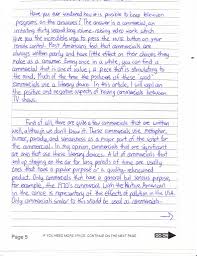 Have you ever wondered how it is possible to have television
programs on the airwaves? The answer is a commercial, an
irritating thirty second long volume-raising video work which
give you the incredible urge to press the mute button on your
remote control. Most Americans feel that commercials are
always written poorly and have little effect on their desires they
make as a consumer. Every once in a while, you can find a
commercial that is one of value; a piece that is stimulating to
the mind. Much of the time the producers of these good
commercials use a literary device. In this article, I will explain
the positive and negative aspects of having commercials between
TV shows.
First of all, there are quite a few commercials that are written
well, although we don't know it. These commercials use metaphor,
humor, parody, and sarcasm as a major part of the
commercial. In my opinion, commercials that are significant
are ones that use these literary devices. A lot of commercials that
end up staying on the air for long periods of time are ones
that have a popular purpose or a quality educational
Only commercials that have a good but serious purpose,
for example, the 1970's commercial with the Native American
in the canoe is representative of the effects of pollution in the USA.
Only commercials similar to this should be used to
Page 5
IF YOU NEED MORE SPACE, CONTINUE ON THE NEXT PAGE.